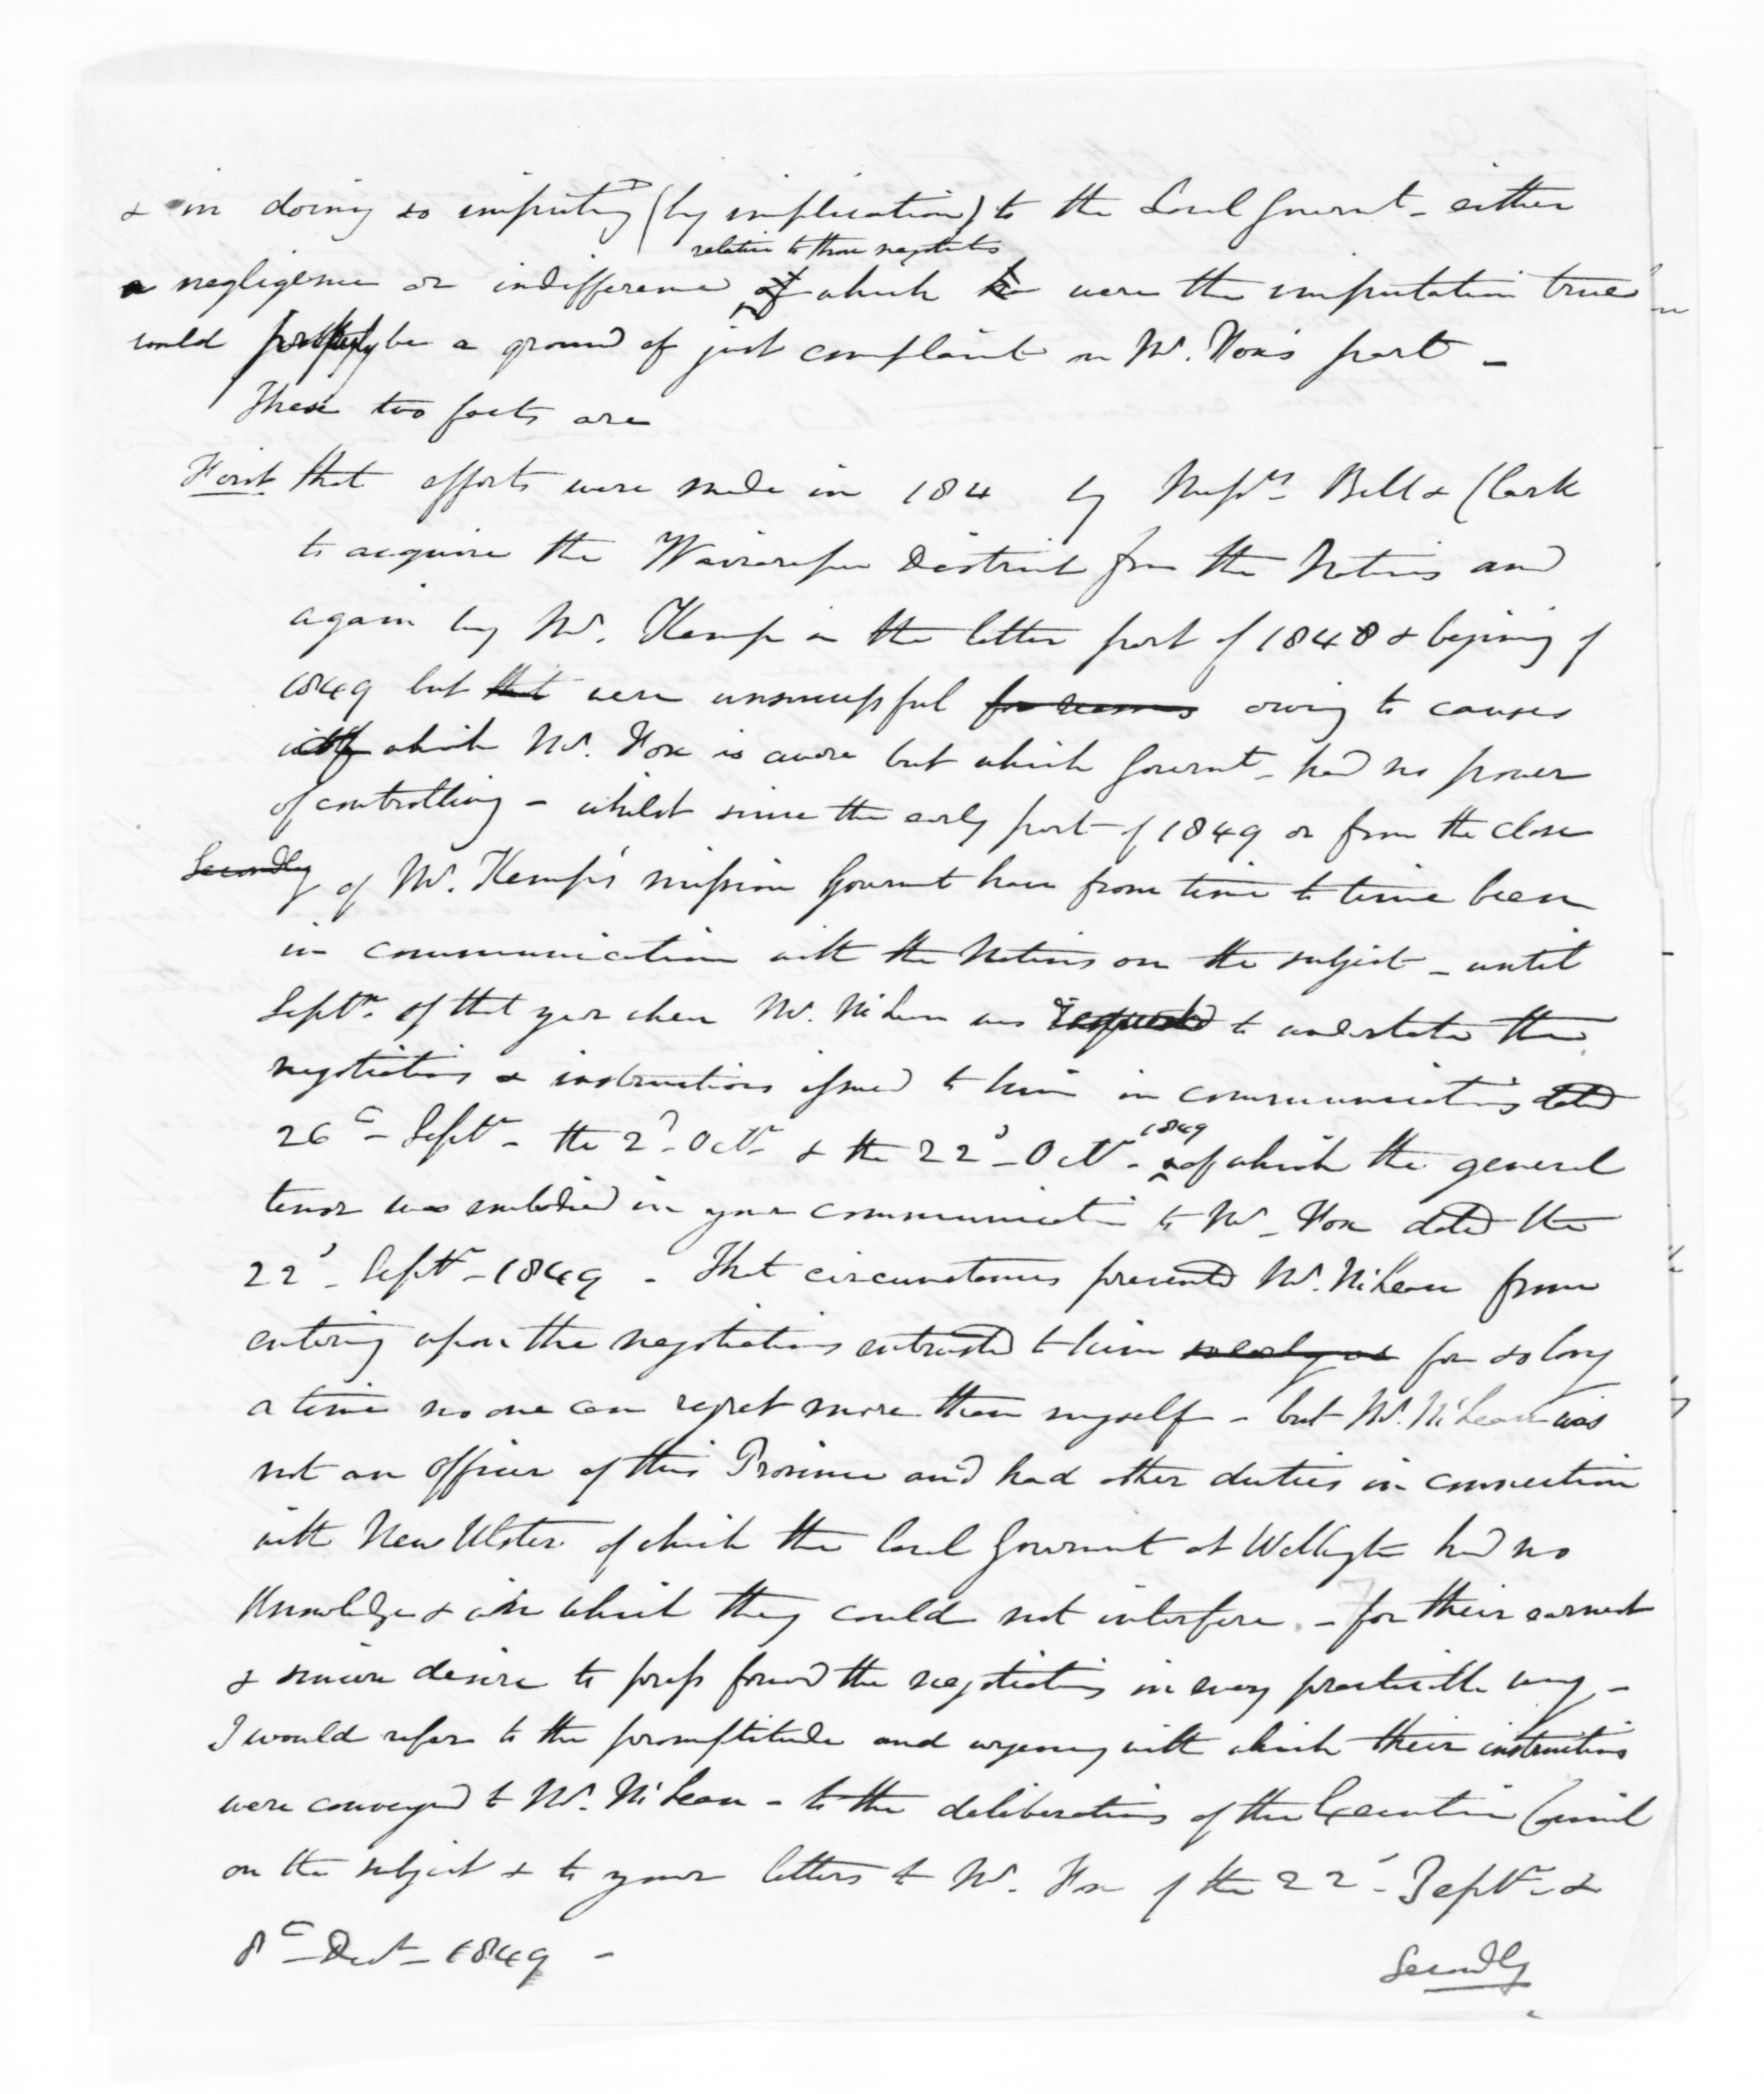 & in doing so imputing (by implication) to the Local Governt - either
relative to those negotiations
a negligence or indifference of which were the imputation true
could be a ground of just complaint on Mr. Fox's part -
These two facts are
First that efforts were made in 184 by Messrs Bell & Clark
to acquire the Wairarapa District from the Natives and
again by Mr. Kemp in the latter part of 1848 & begining of
1849 but that were unsuccessful for reasons owing to causes
of which Mr. Fox is aware but which Governt - had no power
of controlling - whilst since the early part of 1849 or from the close
Secondly of Mr. Kemp's mission Governt have from time to time been
in communication with the Natives on the subject - until
Septr. of that year when Mr. McLean was requested to undertake the
negotiations & instructions issued to him in communications dated
1849
26th - Septr - the 2d - Octr & the 22d - Octr - of which the general
tenor was embodied in your communication to Mr - Fox dated the
22d - Septr - 1849 - That circumstances prevented Mr. McLean from
entering upon the negotiations entrusted to him for so long
a time no one can regret more than myself - but Mr. McLean was
not an officer of this Province and had other duties in connection
with New Ulster of which the local Government at Wellington had no
knowledge & with which they could not interfere. - for their earnest
& sincere desire to press forward the negotiations in every practicable way -
I would refer to the promptitude and urgency with which their instructions
were conveyed to Mr. McLean - to the deliberations of the Executive Council
on the subject & to your letters to Mr. Fox of the 22d - Septr - &
8th - Decr - 1849 -
Secondly